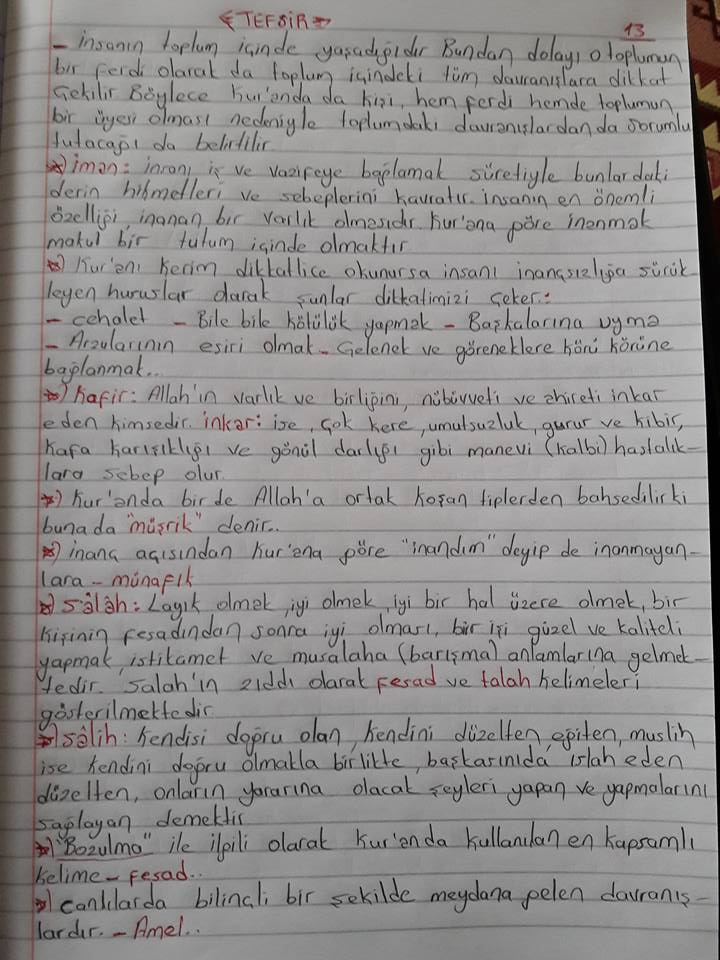 <TEFSİR> 13
- insanın toplum içinde yaşadığıdır Bundan dolayı o toplumun
bir ferdi olarak da toplum içindeki tüm davranışlara dikkat
çekilir Böylece Kur'anda da kişi, hem ferdi hemde toplumun
bir üyesi olması nedeniyle toplumdaki davranışlardan da sorumlu
tutacağı da belirtilir
*) iman: insanı, iş ve vazifeye bağlamak süretiyle bunlardaki
derin hikmetleri ve sebeplerini kavratır. insanın en önemli
özelliği, inanan bir varlık olmasıdır. Kur'ana göre inanmak
makul bir tutum içinde olmaktır
*) Kur'anı kerim dikkatlice okunursa insanı inançsızlığa sürük-
leyen huruslar olarak şunlar dikkatimizi çeker.:
- cehalet - Bile bile kötülük yapmak - Başkalarına uyma
- Arzularının esiri olmak - Gelenek ve göreneklere körü körüne
bağlanmak...
*) Kafir: Allah'ın varlık ve birliğini, nübüvveti ve ahireti inkar
eden kimsedir. inkar: ise, çok kere, umutsuzluk, gurur ve kibir,
kafa karışıklığı ve gönül darlığı gibi manevi (kalbi) hastalık-
lara sebep olur.
*) Kur'anda bir de Allah'a ortak koşan tiplerden bahsedilirki
buna da "müşrik" denir..
*) inanç açısından Kur'ana göre "inandım" deyip de inanmayan-
lara - münafık
*) sâlâh: Layık olmak, iyi olmek, iyi bir hal üzere olmek, bir
kişinin fesadından sonra iyi olması, bir işi güzel ve kaliteli
yapmak, istikamet ve musalaha (barışma) anlamlarına gelmek-
tedir. Salah'ın zıddı olarak fesad ve talah kelimeleri
gösterilmektedir
*) sâlih: Kendisi doğru olan, kendini düzelten, eğiten, muslih
ise kendini doğru olmakla birlikte, başkarınıda ıslah eden
düzelten, onların yararına olacak şeyleri yapan ve yapmalarını
sağlayan demektir
*) "Bozulma" ile ilgili olarak Kur'anda kullanılan en kapsamlı
kelime - fesad..
*) canlılarda bilinçli bir şekilde meydana gelen davranış-
lardır. - Amel..